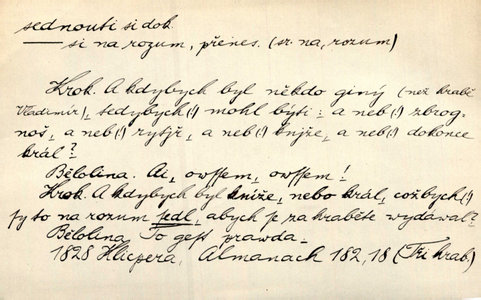 sednouti si dok.
—— si na rozum, přenes. (sr. na, rozum)
Krok. A kdybych byl někdo giný (než hrabě
Vladimír), tedybych(!) mohl býti: a neb(!) zbrog-
noš, a neb(!) rytjř, a neb(!) knjže, a neb(!) dokonce
král?
Bělolina. Ai, owssem, owssem!
Krok. A kdybych byl kníže, nebo král, což bych(!)
sy to na rozum sedl, abych se za hraběte wydáwal?
Bělolina. To gest prawda.
1828 Klicpera, Almanach 182, 18 (Tři hrab.)